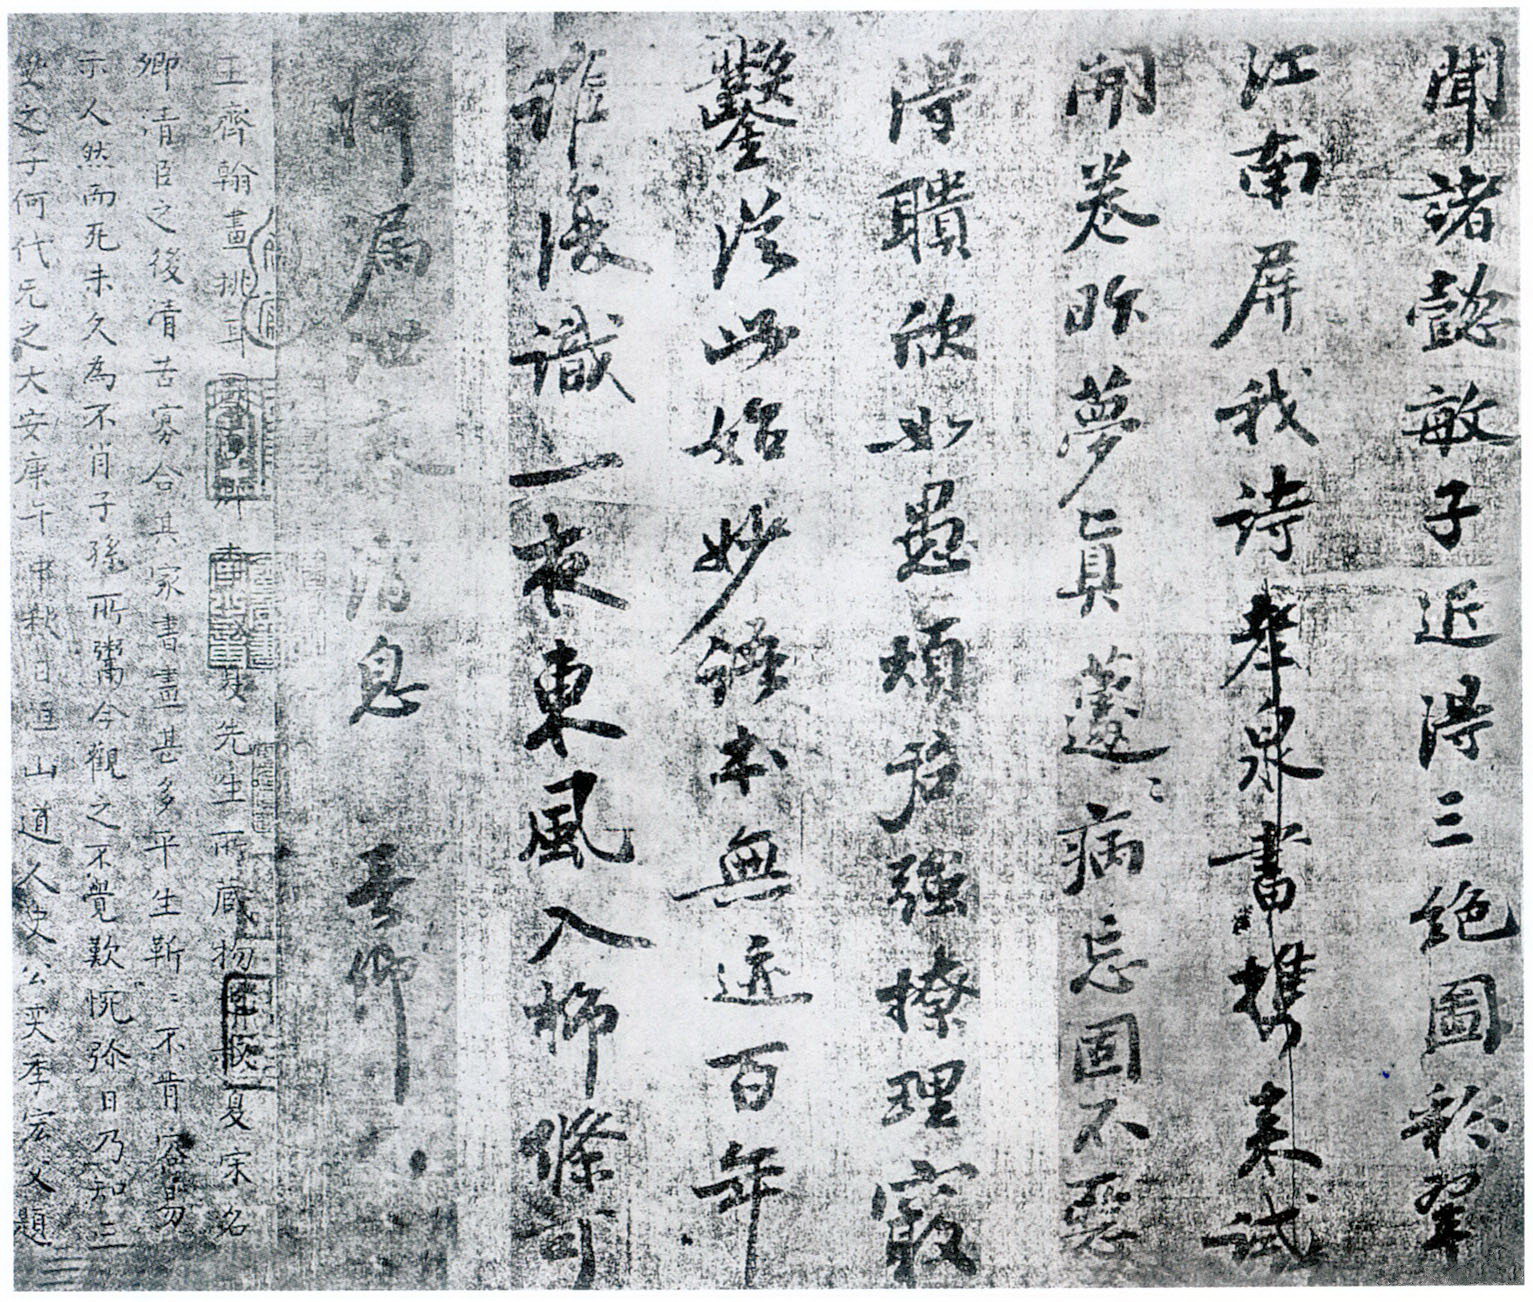 聞諸懿敏子近得三絕圖爺翠
江南屏我詩李泉書攜來試
開卷昨夢真蘧〻病忘固不惡
得聵欣如愚煩君強撩理寂
鑿從此始妙語本無迹百年
誰復識一夜東風入柳條可
何漏泄 消息 晉卿
王齊翰畫挑耳圖 夏先生所藏物 夏宋名
卿清臣之後清苦寡合其家書畫甚多平生靳〻不肯容易
示人然而死未久為不肖子孫所鬻今觀之不覺歎惋弥日乃知三
父之子何代无之大安庚午中秋日 山道人史公奕季宏父題